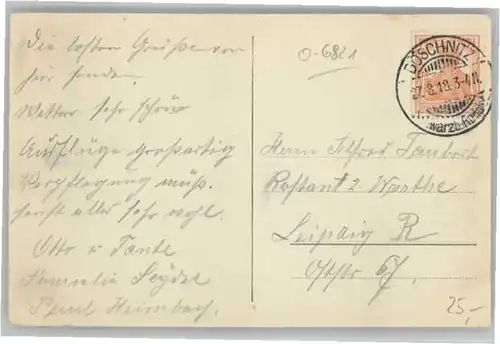 Die besten Grüße von
hier senden.
Wetter sehr schön
Ausflüge großartig
Verpflegung
sonst alles sehr wohl.
Otto u Tante
Familie Seydel
Paul Heimbach.
O-6821
DÖSCHNITZ
27.8.18.3-4N.
Herrn Alfred Taubert
Restaurant z. Warthe
Leipzig R
Oststr 57.
25,-